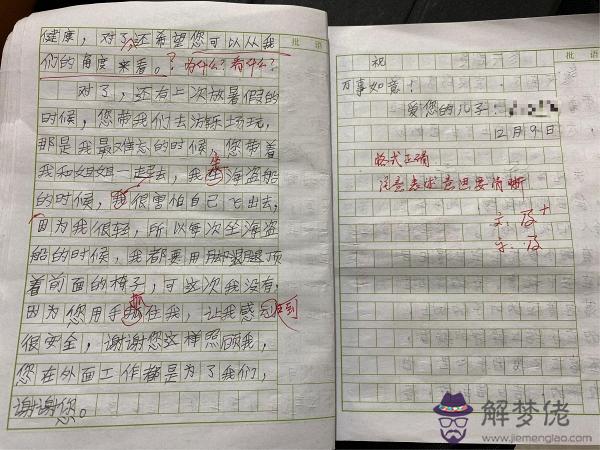 健康，对了还希望您可以从我
们的角度来看。？为什么？看什么？
对了，还有上次放暑假的
时候，您带我们去游乐场玩，
那是我最难忘的时候，您带着
我和姐姐一起去，我坐海盗船
的时候，我很害怕自己飞出去，
因为我很轻，所以每次坐海盗
船的时候，我都要用脚腿顶
着前面的椅子，可这次我没有，
因为您用手住我，让我感觉到
很安全，谢谢您这样照顾我，
您在外面工作都是为了我们，
谢谢您。
批 语
祝
万事如意！
爱您的儿子：
12月9日
格式正确
注意表述意思要清晰
文：
字：
批语
解梦佬
www.jiemenglao.com